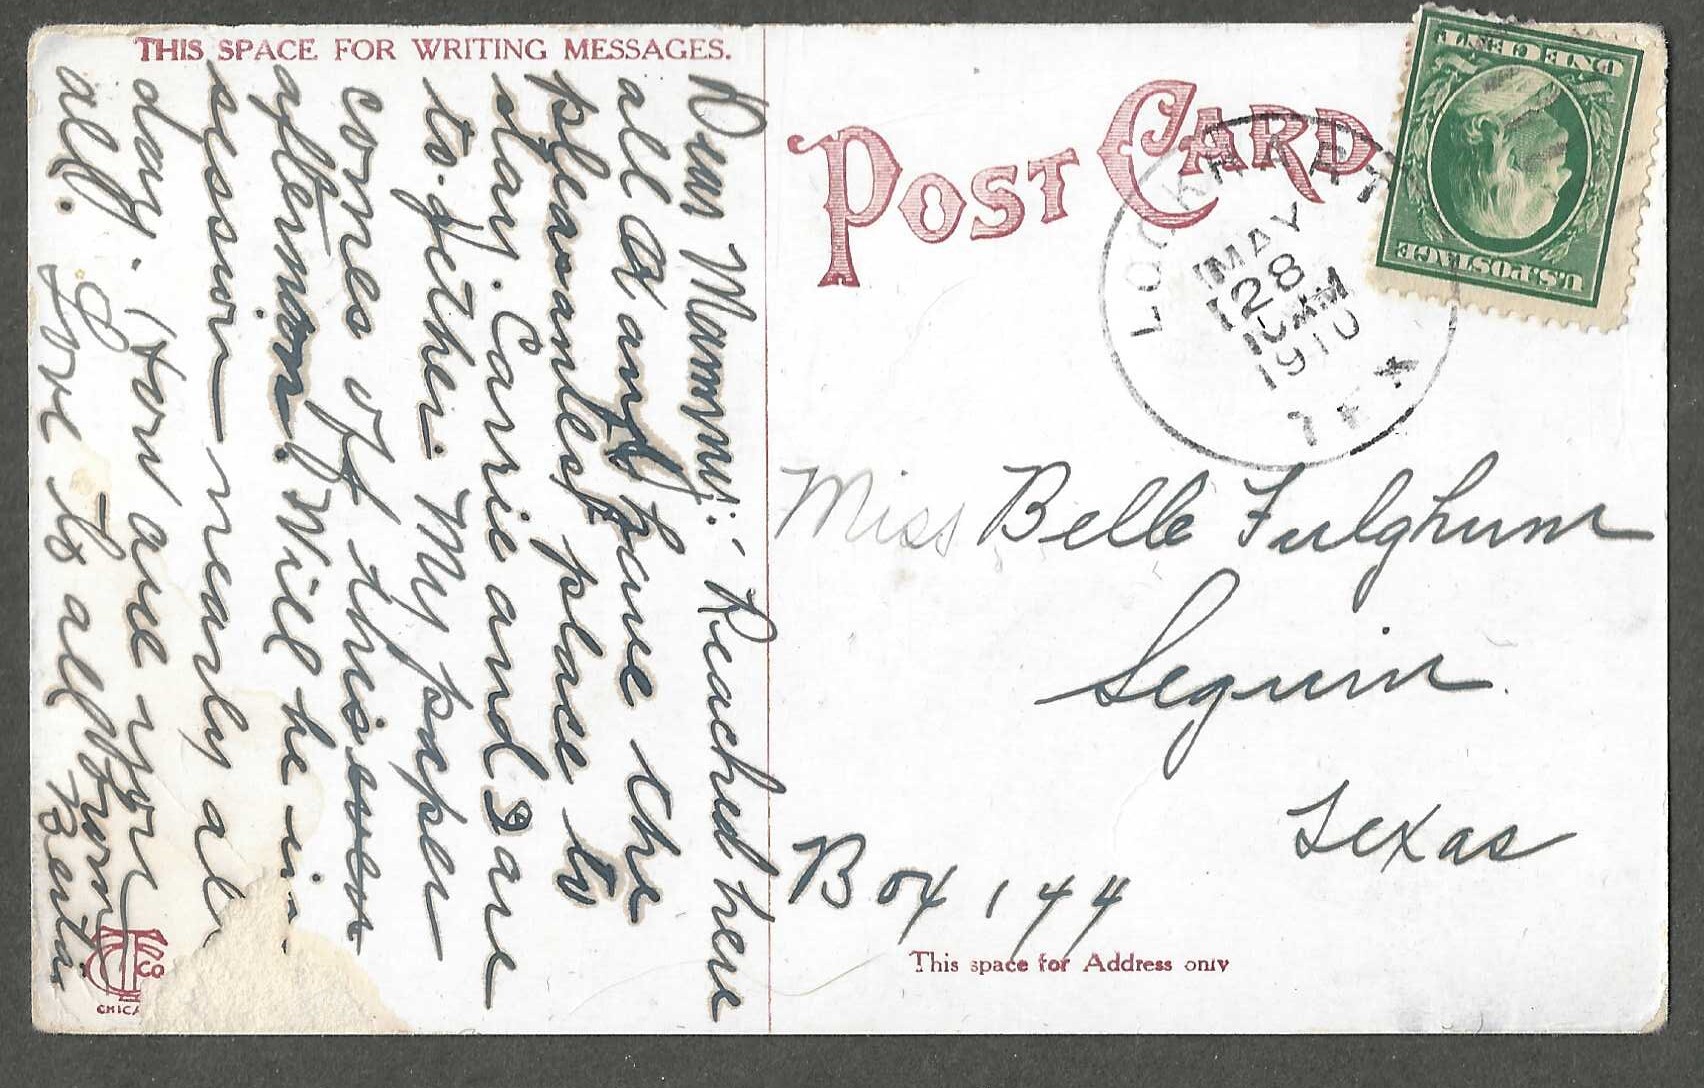 THIS SPACE FOR WRITING MESSAGES.
Dear Mammy: Reached here
all OK and have the
pleasantest place to
stay. Carrie and I are
to-gether. My paper
comes off this
afternoon. Will be in
session nearly all
day. How are you
all. Love to all from
POST CARD
LOCKHART
MAY
28
10 AM
1910
TEX
U.S. POSTAGE
ONE CENT
Miss Belle Fulghum
Seguin
Texas
Box 144
This space for Address only
CO
CHICA